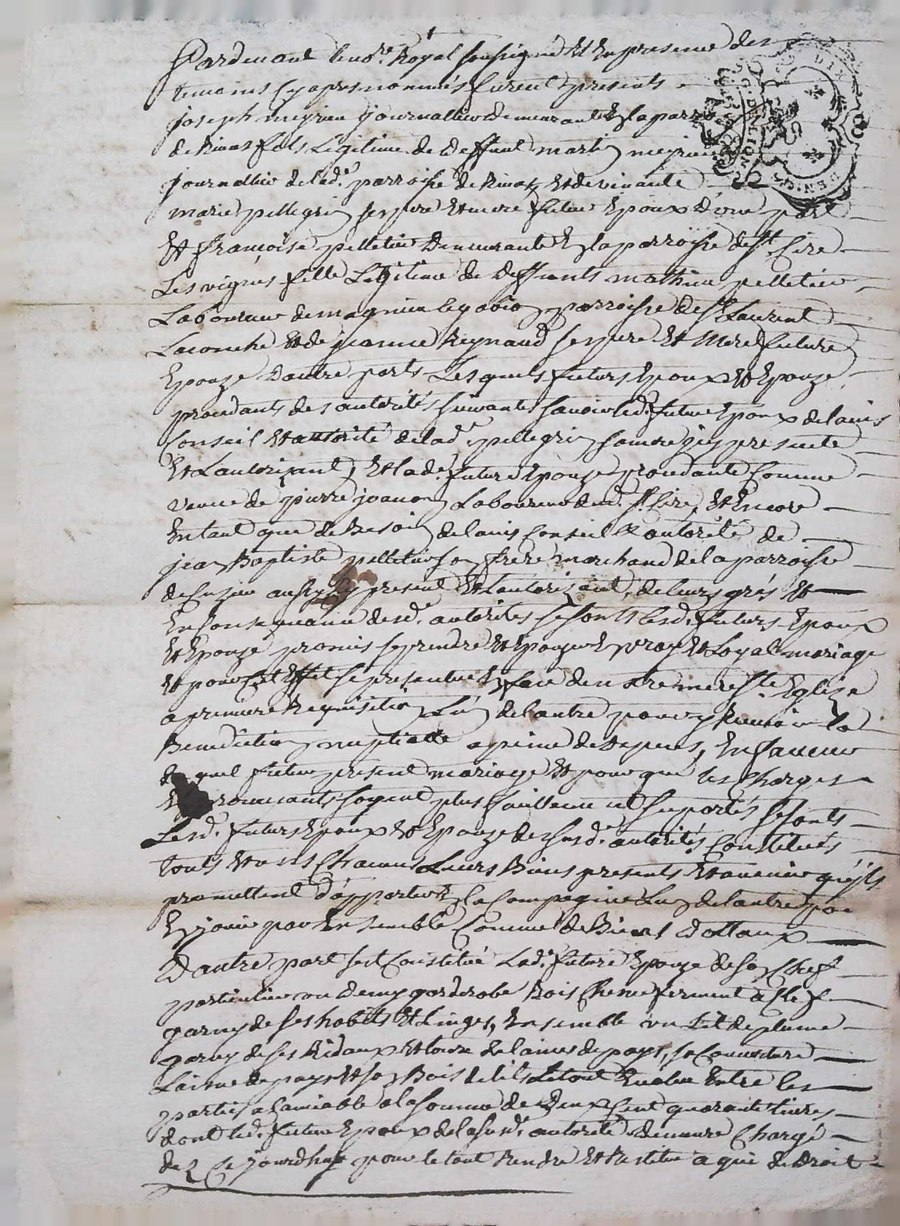 Pardevant le no.re Royal soussigné Et En presence des
temoins cy apres nommés furent presents
joseph meyrieu journallier demeurant En la parr
de Rivas fils Légitime de deffunt martin meyrieu
journallier de lad.e parroisse de Rivas Et de vivante
marie pellegrin ses pere Et mere futur Epoux d'une part
Et françoise pelletier Demeurante En la parroisse de S.t Cire
Les vignes fille Légitime de deffunts mathieu pelletier
Laboureur de magnieu le gabion parroisse de S.t Laurent
Laconche Et de jeanne Reynaud ses pere Et Mere future
Epouze d'autre part, Lesquels futurs Epoux Et Epouze
procedants des autorités suivantes savoir led. futur Epoux de l'avis
Conseil Et autorité de lad.e pellegrin sa mere icy presente
Et L'autorizant, Et lad.e future Epouze procedante Comme
veuve de pierre joanon Laboureur dud. S.t Cire, Et Encore
En tant que de Besoin de l'avis Conseil Et autorité de
jean Baptiste pelletier son frère marchand de la parroisse
de aussy icy present Et L'autorizant, de leurs grés Et
En Consequance desd. autorités se sont lesd. futurs Epoux
Et Epouze promis se prendre Et Epouzer En vray Et Loyal mariage
Et pour Cet Effet se presenter En face de notre mere S.te Eglize
a premiere Requisition L'un de l'autre pour y Recevoir la
Benediction nuptialle a peine de depens, En faveur
duquel futur present mariage Et pour que les Charges
En provenants soyent plus facillement suportés se sont
Lesd. futurs Epoux Et Epouze de susd. autorités Constitués
touts Et uns Chacuns Leurs Biens presents Et avenir qu'ils
promettent d'apporter En la Compagnie L'un de l'autre pour
En jouir par Ensemble Comme de Biens Dottaux
D'autre part s'est Constitué Lad. future Epouze de son Chef
particulier un Demy garderobe Bois Chene fermant à Clef
garny de ses habits Et Linges, Ensemble un Lit de plume
garny de ses Ridaux Et tour de laines de pays, sa Couverture
Laine de pays Et son Bois de lit Le tout Evalué Entre les
parties a L'amiable a la somme de Deux Cent quarante livres
dont led. futur Epoux de la susd. autorité Demeure Chargé
de Ce jourd'huy pour le tout Rendre Et Restituer a qui de Droit